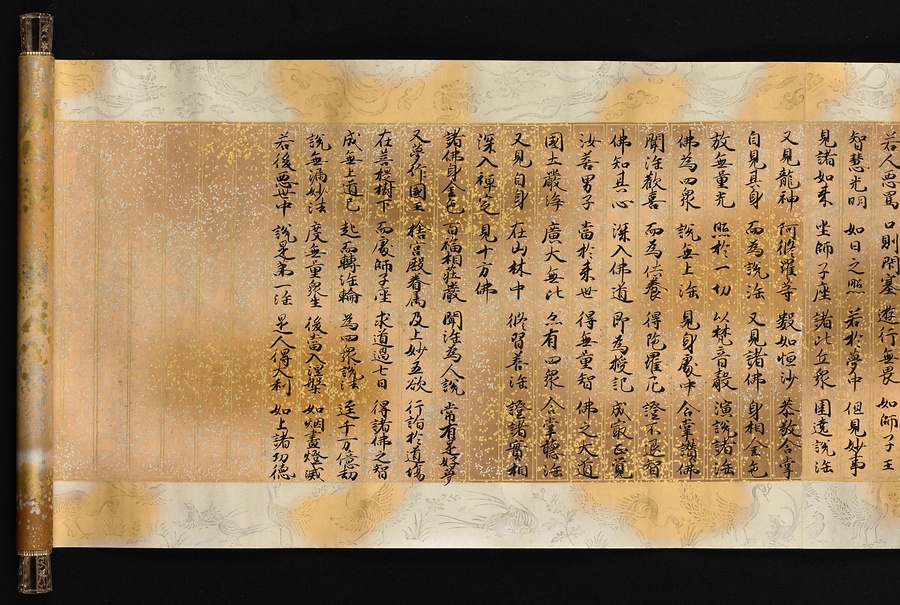 若人惡罵 口則閉塞 遊行無畏 如師子王
智慧光明 如日之照 若於夢中 但見妙事
見諸如來 坐師子座 諸比丘衆 圍遶說法
又見龍神 阿修羅等 數如恒沙 恭敬合掌
自見其身 而為說法 又見諸佛 身相金色
放無量光 照於一切 以梵音聲 演說諸法
佛為四衆 說無上法 見身處中 合掌讚佛
聞法歡喜 而為供養 得陀羅尼 證不退智
佛知其心 深入佛道 即為授記 成冣正覺
汝善男子 當於來世 得無量智 佛之大道
國土嚴淨 廣大無比 亦有四衆 合掌聽法
又見自身 在山林中 修習善法 證諸實相
深入禪定 見十方佛
諸佛身金色 百福相莊嚴 聞法為人說 常有是好夢
又夢作國王 捨宮殿眷屬 及上妙五欲 行詣於道場
在菩提樹下 而處師子座 求道過七日 得諸佛之智
成無上道已 起而轉法輪 為四衆說法 逕千万億劫
說無漏妙法 度無量衆生 後當入涅槃 如烟盡燈滅
若後惡世中 說是第一法 是人得大利 如上諸功德